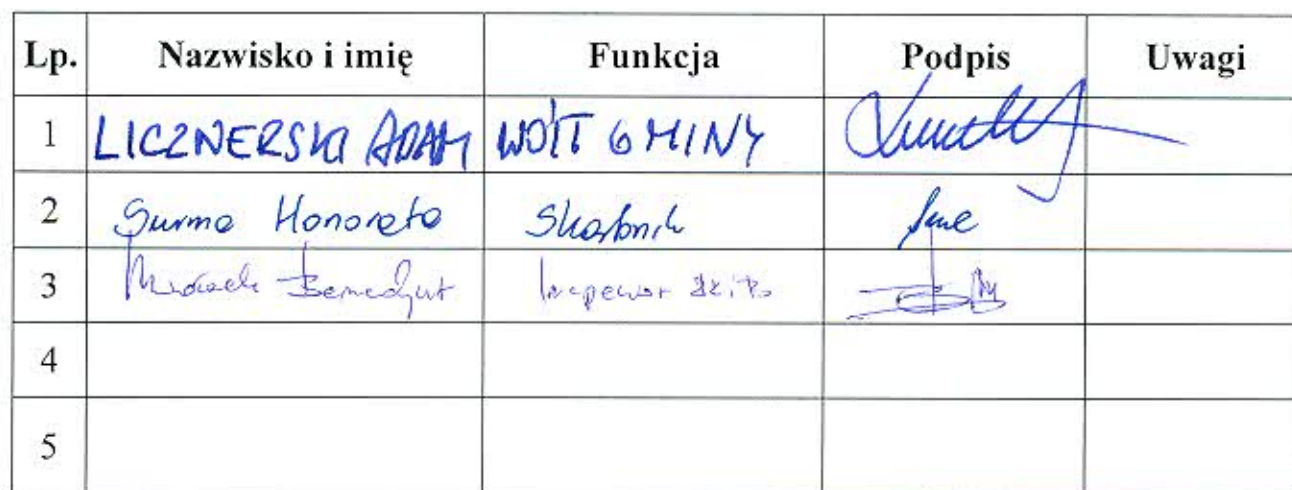 Lp. Nazwisko i imię Funkcja Podpis Uwagi
1 LICZNERSKI ADAM WÓJT GMINY
2 Surma Honorata Skarbnik
3 Benedykt
4
5